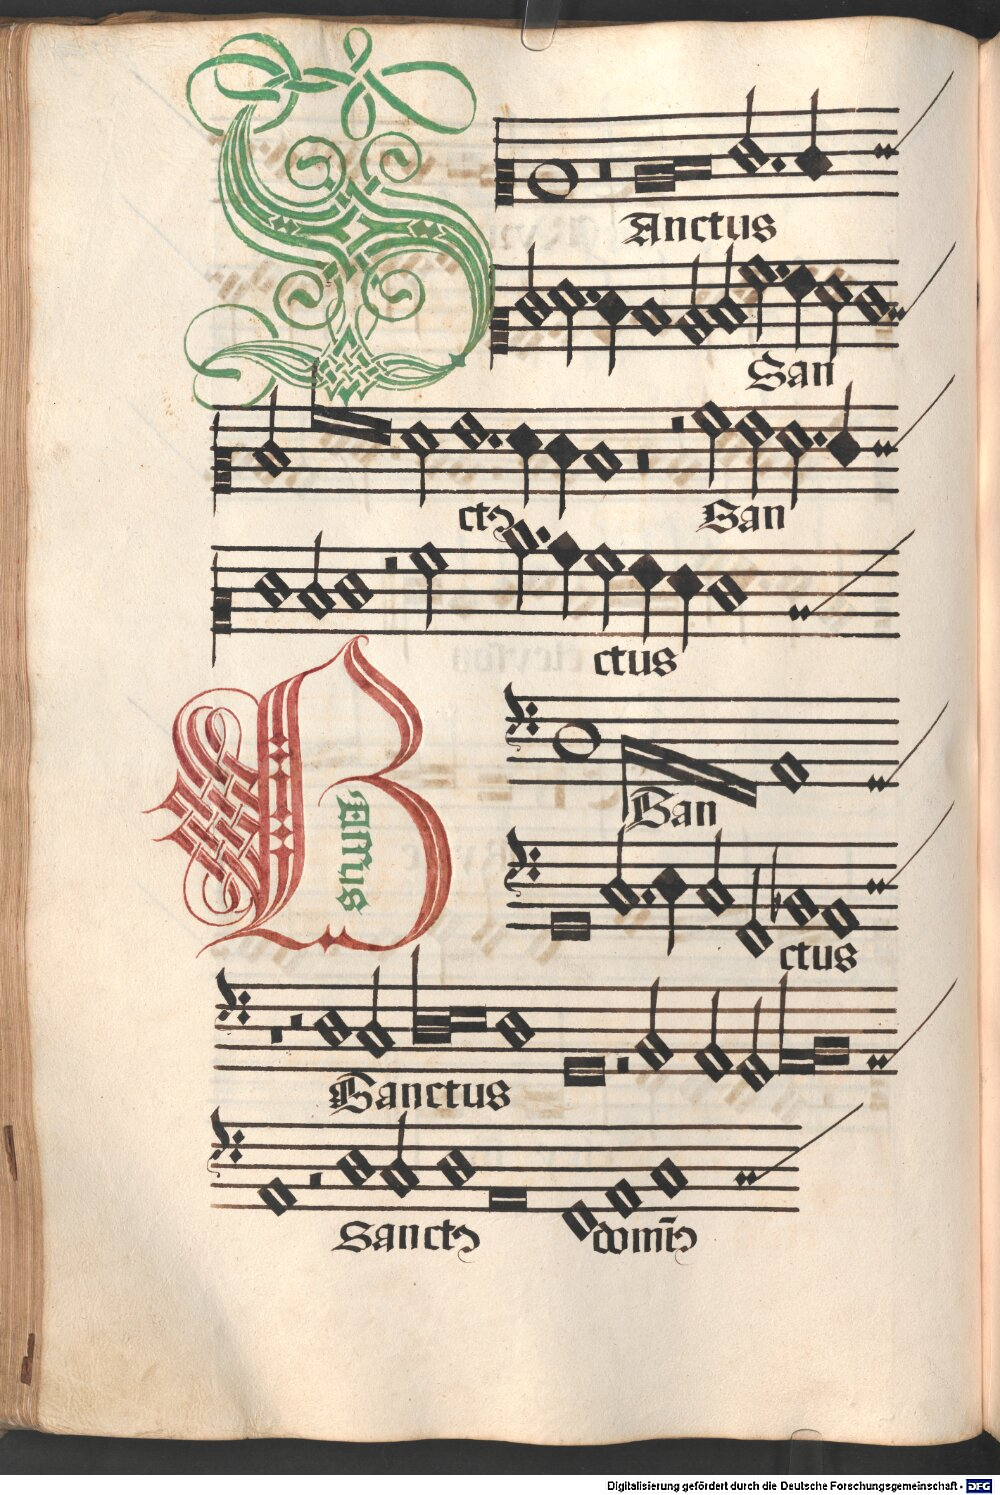 SAnctus
San
ctꝰ San
ctus
Barrus
San
ctus
Sanctus
Sanctꝰ domīꝰ
Digitalisierung gefördert durch die Deutsche Forschungsgemeinschaft - DFG